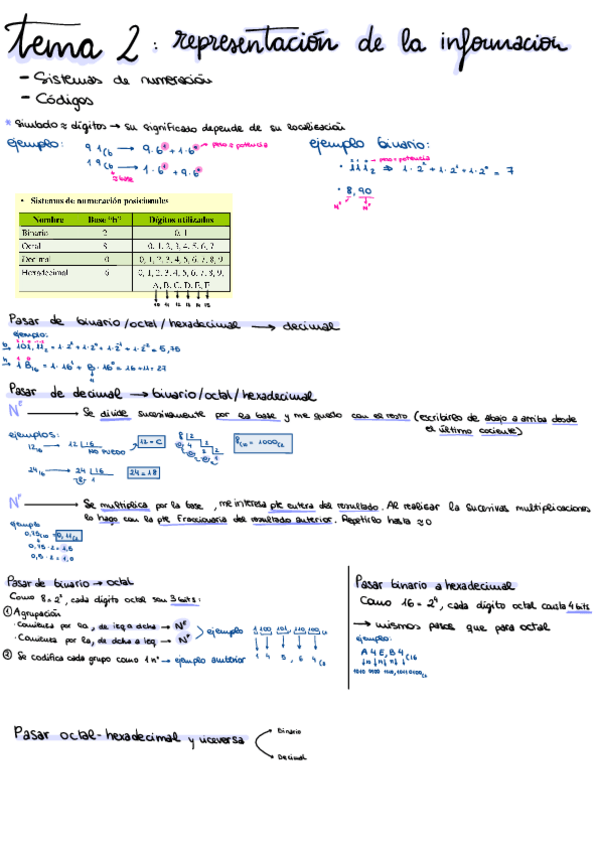 tema 2: representación de la informacion
- Sistemas de numeración
- Códigos
* Simbolo ≈ dígitos → su significado depende de su localización
ejemplo:
91₍₆ → 9·6¹ + 1·6⁰ → peso = potencia
19₍₆ → 1·6¹ + 9·6⁰
≈ base
ejemplo binario:
· 111₂ ⇒ 1·2² + 1·2¹ + 1·2⁰ = 7
peso = potencia
· 8,90
• Sistemas de numeración posicionales
Nombre Base "b" Dígitos utilizados
Binario 2 0, 1
Octal 8 0, 1, 2, 3, 4, 5, 6, 7
Decimal 0 0, 1, 2, 3, 4, 5, 6, 7, 8, 9
Hexadecimal 6 0, 1, 2, 3, 4, 5, 6, 7, 8, 9,
A, B, C, D, E, F
10 11 12 13 14 15
Pasar de binario/octal/hexadecimal → decimal
ejemplo:
101,11₂ = 1·2² + 1·2⁰ + 1·2⁻¹ + 1·2⁻² = 5,75
1B₁₆ = 1·16¹ + B·16⁰ = 16+11 = 27
Pasar de decimal → binario/octal/hexadecimal
Nᴱ → Se divide sucesivamente por la base y me quedo con el resto (escribirlo de abajo a arriba desde
el último cociente)
ejemplos:
12₁₆ → 12 |16
NO PUEDO
12 = C
8 |2
8₍₁₀ = 1000₍₂
24₁₆ → 24 |16
8 1
24 = 18
Nᶠ → Se multiplica por la base, me interesa pte entera del resultado. Al realizar la sucesivas multiplicaciones
lo hago con la pte fraccionaria del resultado anterior. Repetirlo hasta ≈ 0
ejemplo
0,75₍₁₀ = 0,11₍₂
0,75·2 = 1,5
0,5·2 = 1,0
Pasar de binario → octal
Como 8 = 2³, cada dígito octal son 3 bits:
① Agrupación
· Comienza por la, de izq a dcha → Nᶠ
· Comienza por la, de dcha a izq → Nᴱ
ejemplo 1 100 101, 110 100₍₂
1 4 5 , 6 4₍₈
② Se codifica cada grupo como 1 nº → ejemplo anterior
Pasar binario a hexadecimal
Como 16 = 2⁴, cada dígito octal consta 4 bits
→ mismos pasos que para octal
ejemplo:
A4E,B4₍₁₆
Pasar octal-hexadecimal y viceversa
Binario
Decimal